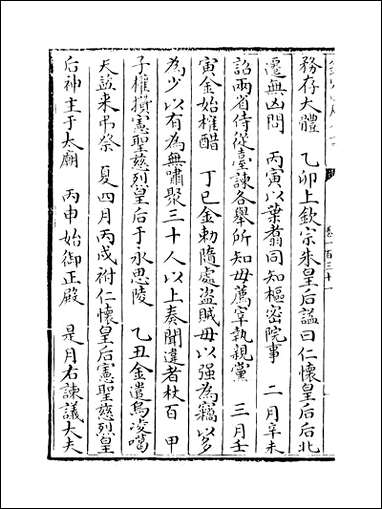 務存大體　乙卯上欽宗朱皇后諡曰仁懷皇后后北
遷無凶問　丙寅以葉翥同知樞密院事　二月辛未
詔兩省侍從臺諫各舉所知毋薦宰執親黨　三月壬
寅金始榷醋　丁巳金勅隨處盜賊毋以强為竊以多
為少以有為無嘯聚三十人以上奏聞違者杖百　甲
子權攢憲聖慈烈皇后于永思陵　乙丑金遣烏凌噶
天益来弔祭　夏四月丙戌祔仁懷皇后憲聖慈烈皇
后神主于太廟　丙申始御正殿　是月右諫議大夫
卷一百三十一